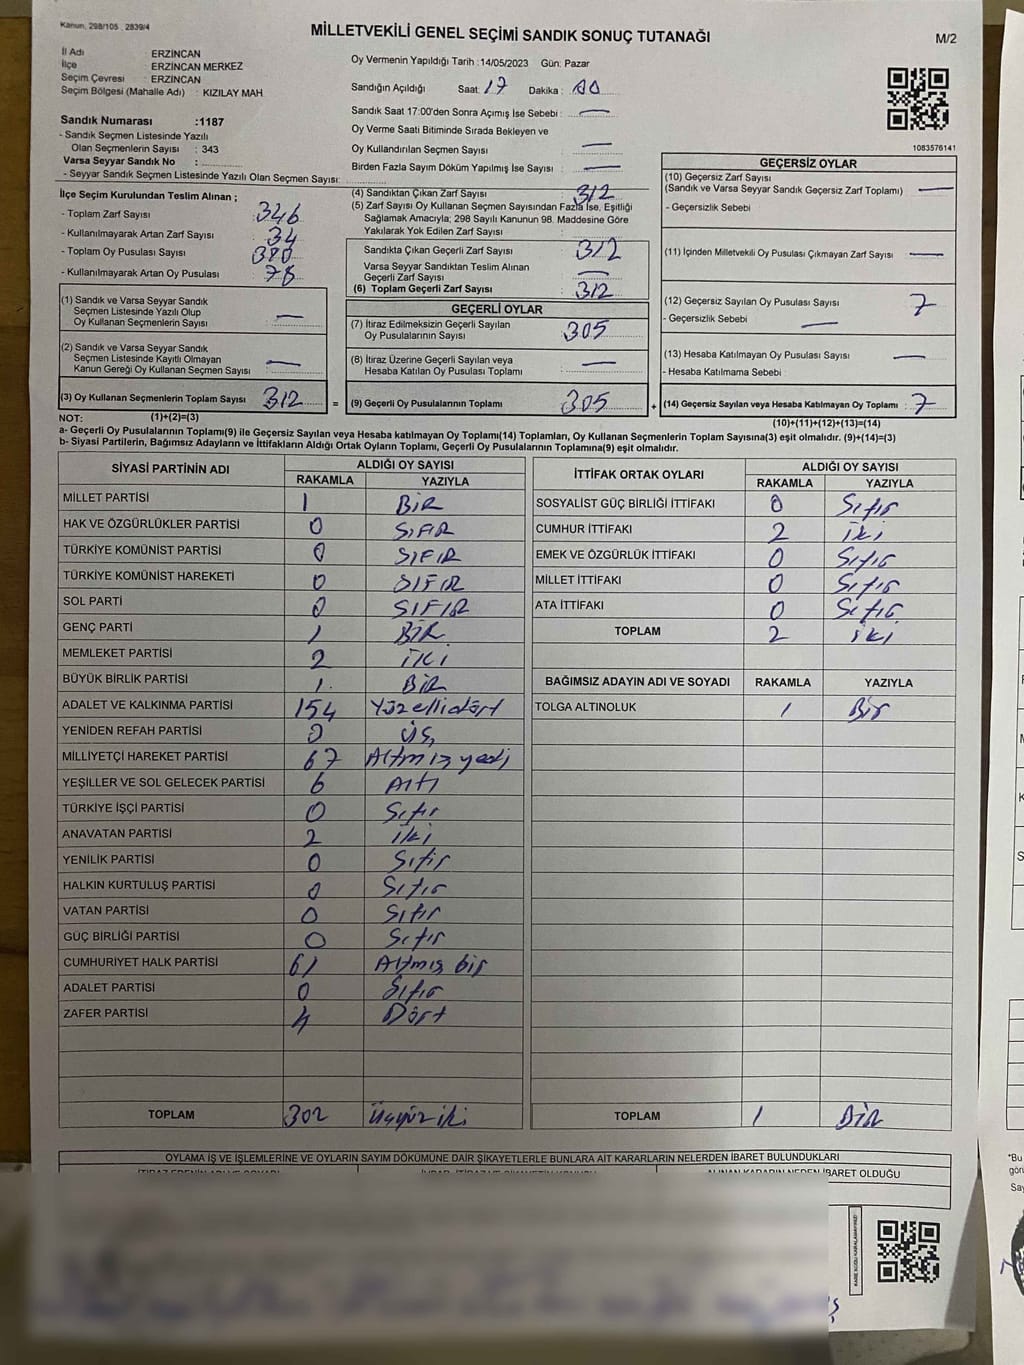 Kanun, 298/105 , 2839/4
MİLLETVEKİLİ GENEL SEÇİMİ SANDIK SONUÇ TUTANAĞI
M/2
İl Adı : ERZİNCAN
İlçe : ERZİNCAN MERKEZ
Seçim Çevresi : ERZİNCAN
Seçim Bölgesi (Mahalle Adı) : KIZILAY MAH
Sandık Numarası :1187
- Sandık Seçmen Listesinde Yazılı
Olan Seçmenlerin Sayısı : 343
Varsa Seyyar Sandık No :
- Seyyar Sandık Seçmen Listesinde Yazılı Olan Seçmen Sayısı:
Oy Vermenin Yapıldığı Tarih :14/05/2023 Gün: Pazar
Sandığın Açıldığı Saat: 17 Dakika : 00
Sandık Saat 17:00'den Sonra Açımış İse Sebebi : —
Oy Verme Saati Bitiminde Sırada Bekleyen ve
Oy Kullandırılan Seçmen Sayısı : —
Birden Fazla Sayım Döküm Yapılmış İse Sayısı : —
1083576141
İlçe Seçim Kurulundan Teslim Alınan ;
- Toplam Zarf Sayısı : 346
- Kullanılmayarak Artan Zarf Sayısı : 34
- Toplam Oy Pusulası Sayısı : 380
- Kullanılmayarak Artan Oy Pusulası : 78
(1) Sandık ve Varsa Seyyar Sandık
Seçmen Listesinde Yazılı Olup
Oy Kullanan Seçmenlerin Sayısı : —
(2) Sandık ve Varsa Seyyar Sandık
Seçmen Listesinde Kayıtlı Olmayan
Kanun Gereği Oy Kullanan Seçmen Sayısı : —
(3) Oy Kullanan Seçmenlerin Toplam Sayısı : 312 =
(4) Sandıktan Çıkan Zarf Sayısı : 312
(5) Zarf Sayısı Oy Kullanan Seçmen Sayısından Fazla İse, Eşitliği
Sağlamak Amacıyla; 298 Sayılı Kanunun 98. Maddesine Göre
Yakılarak Yok Edilen Zarf Sayısı :
Sandıkta Çıkan Geçerli Zarf Sayısı : 312
Varsa Seyyar Sandıktan Teslim Alınan
Geçerli Zarf Sayısı : —
(6) Toplam Geçerli Zarf Sayısı : 312
GEÇERLİ OYLAR
(7) İtiraz Edilmeksizin Geçerli Sayılan
Oy Pusulalarının Sayısı : 305
(8) İtiraz Üzerine Geçerli Sayılan veya
Hesaba Katılan Oy Pusulası Toplamı : —
(9) Geçerli Oy Pusulalarının Toplamı : 305 +
GEÇERSİZ OYLAR
(10) Geçersiz Zarf Sayısı
(Sandık ve Varsa Seyyar Sandık Geçersiz Zarf Toplamı) : —
- Geçersizlik Sebebi
(11) İçinden Milletvekili Oy Pusulası Çıkmayan Zarf Sayısı : —
(12) Geçersiz Sayılan Oy Pusulası Sayısı : 7
- Geçersizlik Sebebi : —
(13) Hesaba Katılmayan Oy Pusulası Sayısı : —
- Hesaba Katılmama Sebebi :
(14) Geçersiz Sayılan veya Hesaba Katılmayan Oy Toplamı : 7
NOT: (1)+(2)=(3)
(10)+(11)+(12)+(13)=(14)
a- Geçerli Oy Pusulalarının Toplamı(9) ile Geçersiz Sayılan veya Hesaba katılmayan Oy Toplamı(14) Toplamları, Oy Kullanan Seçmenlerin Toplam Sayısına(3) eşit olmalıdır. (9)+(14)=(3)
b- Siyasi Partilerin, Bağımsız Adayların ve İttifakların Aldığı Ortak Oyların Toplamı, Geçerli Oy Pusulalarının Toplamına(9) eşit olmalıdır.
SİYASİ PARTİNİN ADI ALDIĞI OY SAYISI
RAKAMLA YAZIYLA
MİLLET PARTİSİ 1 BİR
HAK VE ÖZGÜRLÜKLER PARTİSİ 0 SIFIR
TÜRKİYE KOMÜNİST PARTİSİ 0 SIFIR
TÜRKİYE KOMÜNİST HAREKETİ 0 SIFIR
SOL PARTİ 0 SIFIR
GENÇ PARTİ 1 BİR
MEMLEKET PARTİSİ 2 İKİ
BÜYÜK BİRLİK PARTİSİ 1 BİR
ADALET VE KALKINMA PARTİSİ 154 Yüzellidört
YENİDEN REFAH PARTİSİ 3 üç
MİLLİYETÇİ HAREKET PARTİSİ 67 Altmış yedi
YEŞİLLER VE SOL GELECEK PARTİSİ 6 Altı
TÜRKİYE İŞÇİ PARTİSİ 0 Sıfır
ANAVATAN PARTİSİ 2 iki
YENİLİK PARTİSİ 0 Sıfır
HALKIN KURTULUŞ PARTİSİ 0 Sıfır
VATAN PARTİSİ 0 Sıfır
GÜÇ BİRLİĞİ PARTİSİ 0 Sıfır
CUMHURİYET HALK PARTİSİ 61 Altmış bir
ADALET PARTİSİ 0 Sıfır
ZAFER PARTİSİ 4 Dört
TOPLAM 302 Üçyüz iki
İTTİFAK ORTAK OYLARI ALDIĞI OY SAYISI
RAKAMLA YAZIYLA
SOSYALİST GÜÇ BİRLİĞİ İTTİFAKI 0 Sıfır
CUMHUR İTTİFAKI 2 iki
EMEK VE ÖZGÜRLÜK İTTİFAKI 0 Sıfır
MİLLET İTTİFAKI 0 Sıfır
ATA İTTİFAKI 0 Sıfır
TOPLAM 2 iki
BAĞIMSIZ ADAYIN ADI VE SOYADI RAKAMLA YAZIYLA
TOLGA ALTINOLUK 1 Bir
TOPLAM 1 BİR
OYLAMA İŞ VE İŞLEMLERİNE VE OYLARIN SAYIM DÖKÜMÜNE DAİR ŞİKAYETLERLE BUNLARA AİT KARARLARIN NELERDEN İBARET BULUNDUKLARI
ALINAN KARARIN NEDEN İBARET OLDUĞU